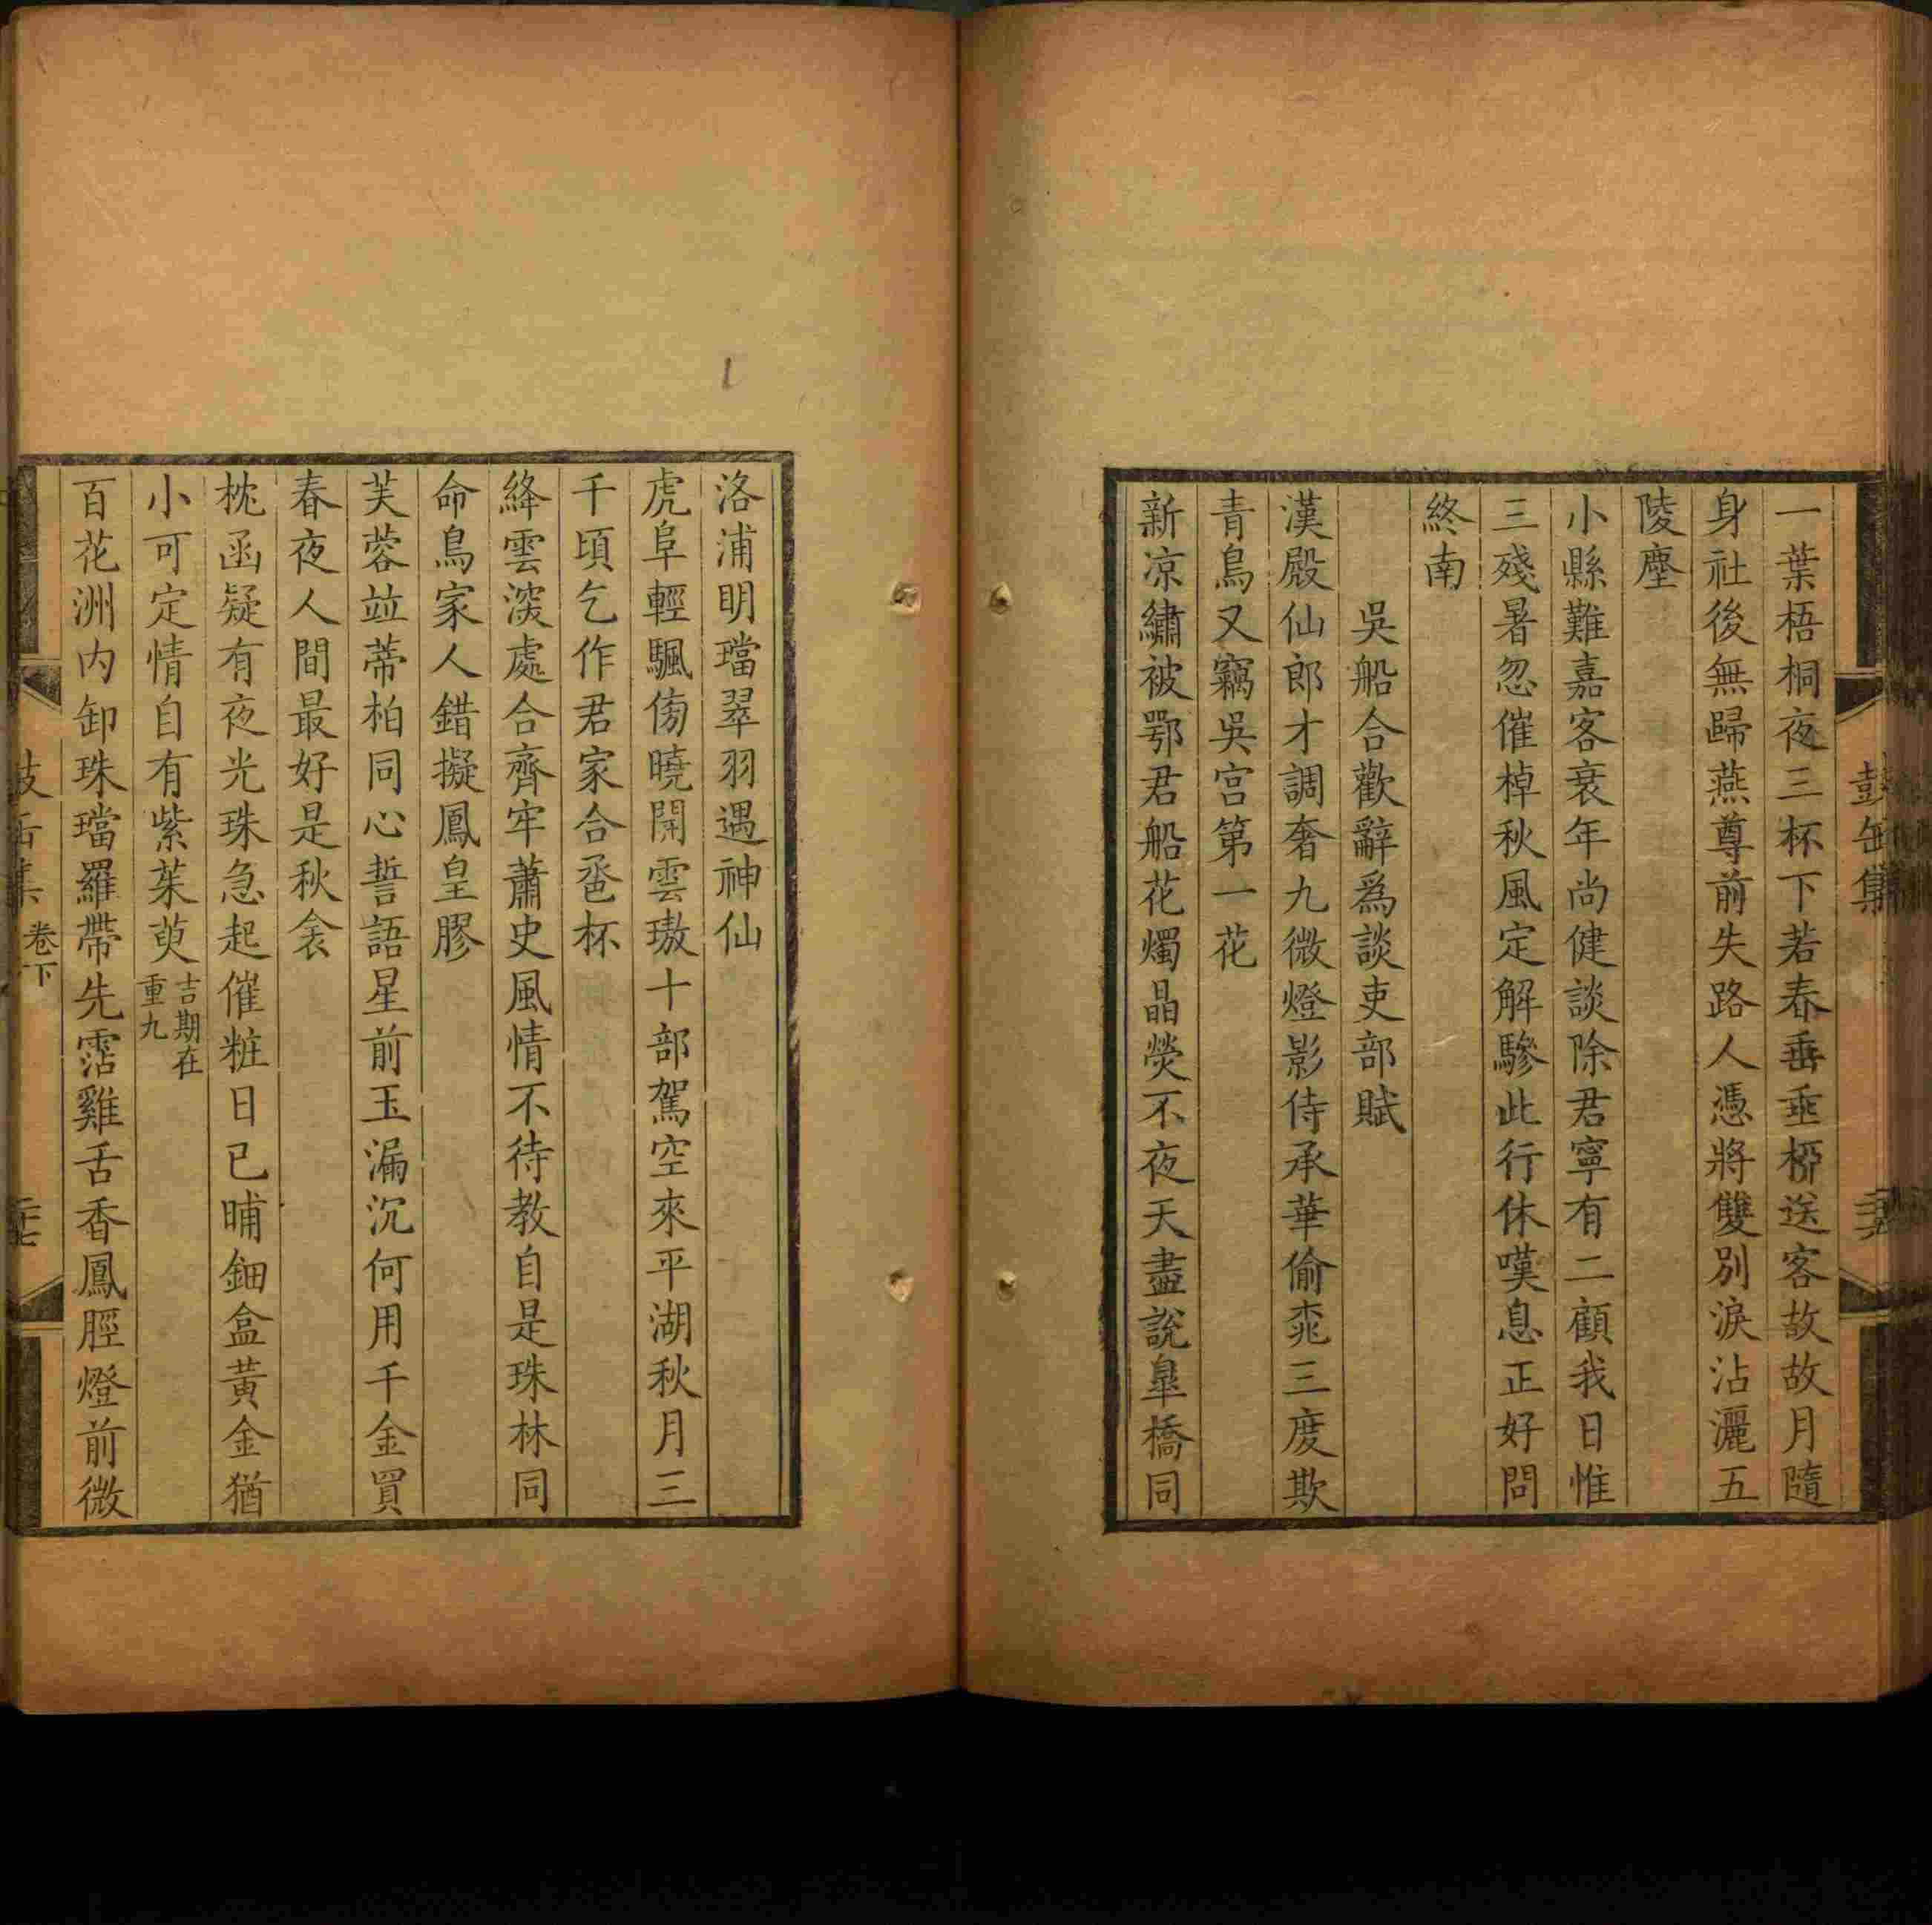 一葉梧桐夜三杯下若春垂垂桺送客故故月隨
身社後無歸燕尊前失路人憑將雙別淚沾灑五
陵塵
小縣難嘉客衰年尚健談除君寧有二顧我日惟
三殘暑忽催棹秋風定解驂此行休嘆息正好問
終南
吳船合歡辭爲談吏部賦
漢殿仙郎才調奢九微燈影侍承華偷桃三度欺
青鳥又竊吳宮第一花
新凉繡被鄂君船花燭晶熒不夜天盡說皐橋同
洛浦明璫翠羽遇神仙
虎阜輕颿傍曉開雲璈十部駕空來平湖秋月三
千頃乞作君家合卺杯
絳雲深處合齊牢蕭史風情不待教自是珠林同
命鳥家人錯擬鳳皇膠
芙蓉竝蒂柏同心誓語星前玉漏沉何用千金買
春夜人間最好是秋衾
枕函疑有夜光珠急起催粧日已晡鈿盒黃金猶
小可定情自有紫茱萸吉期在
重九
百花洲內卸珠璫羅帶先霑雞舌香鳳脛燈前微
卷下